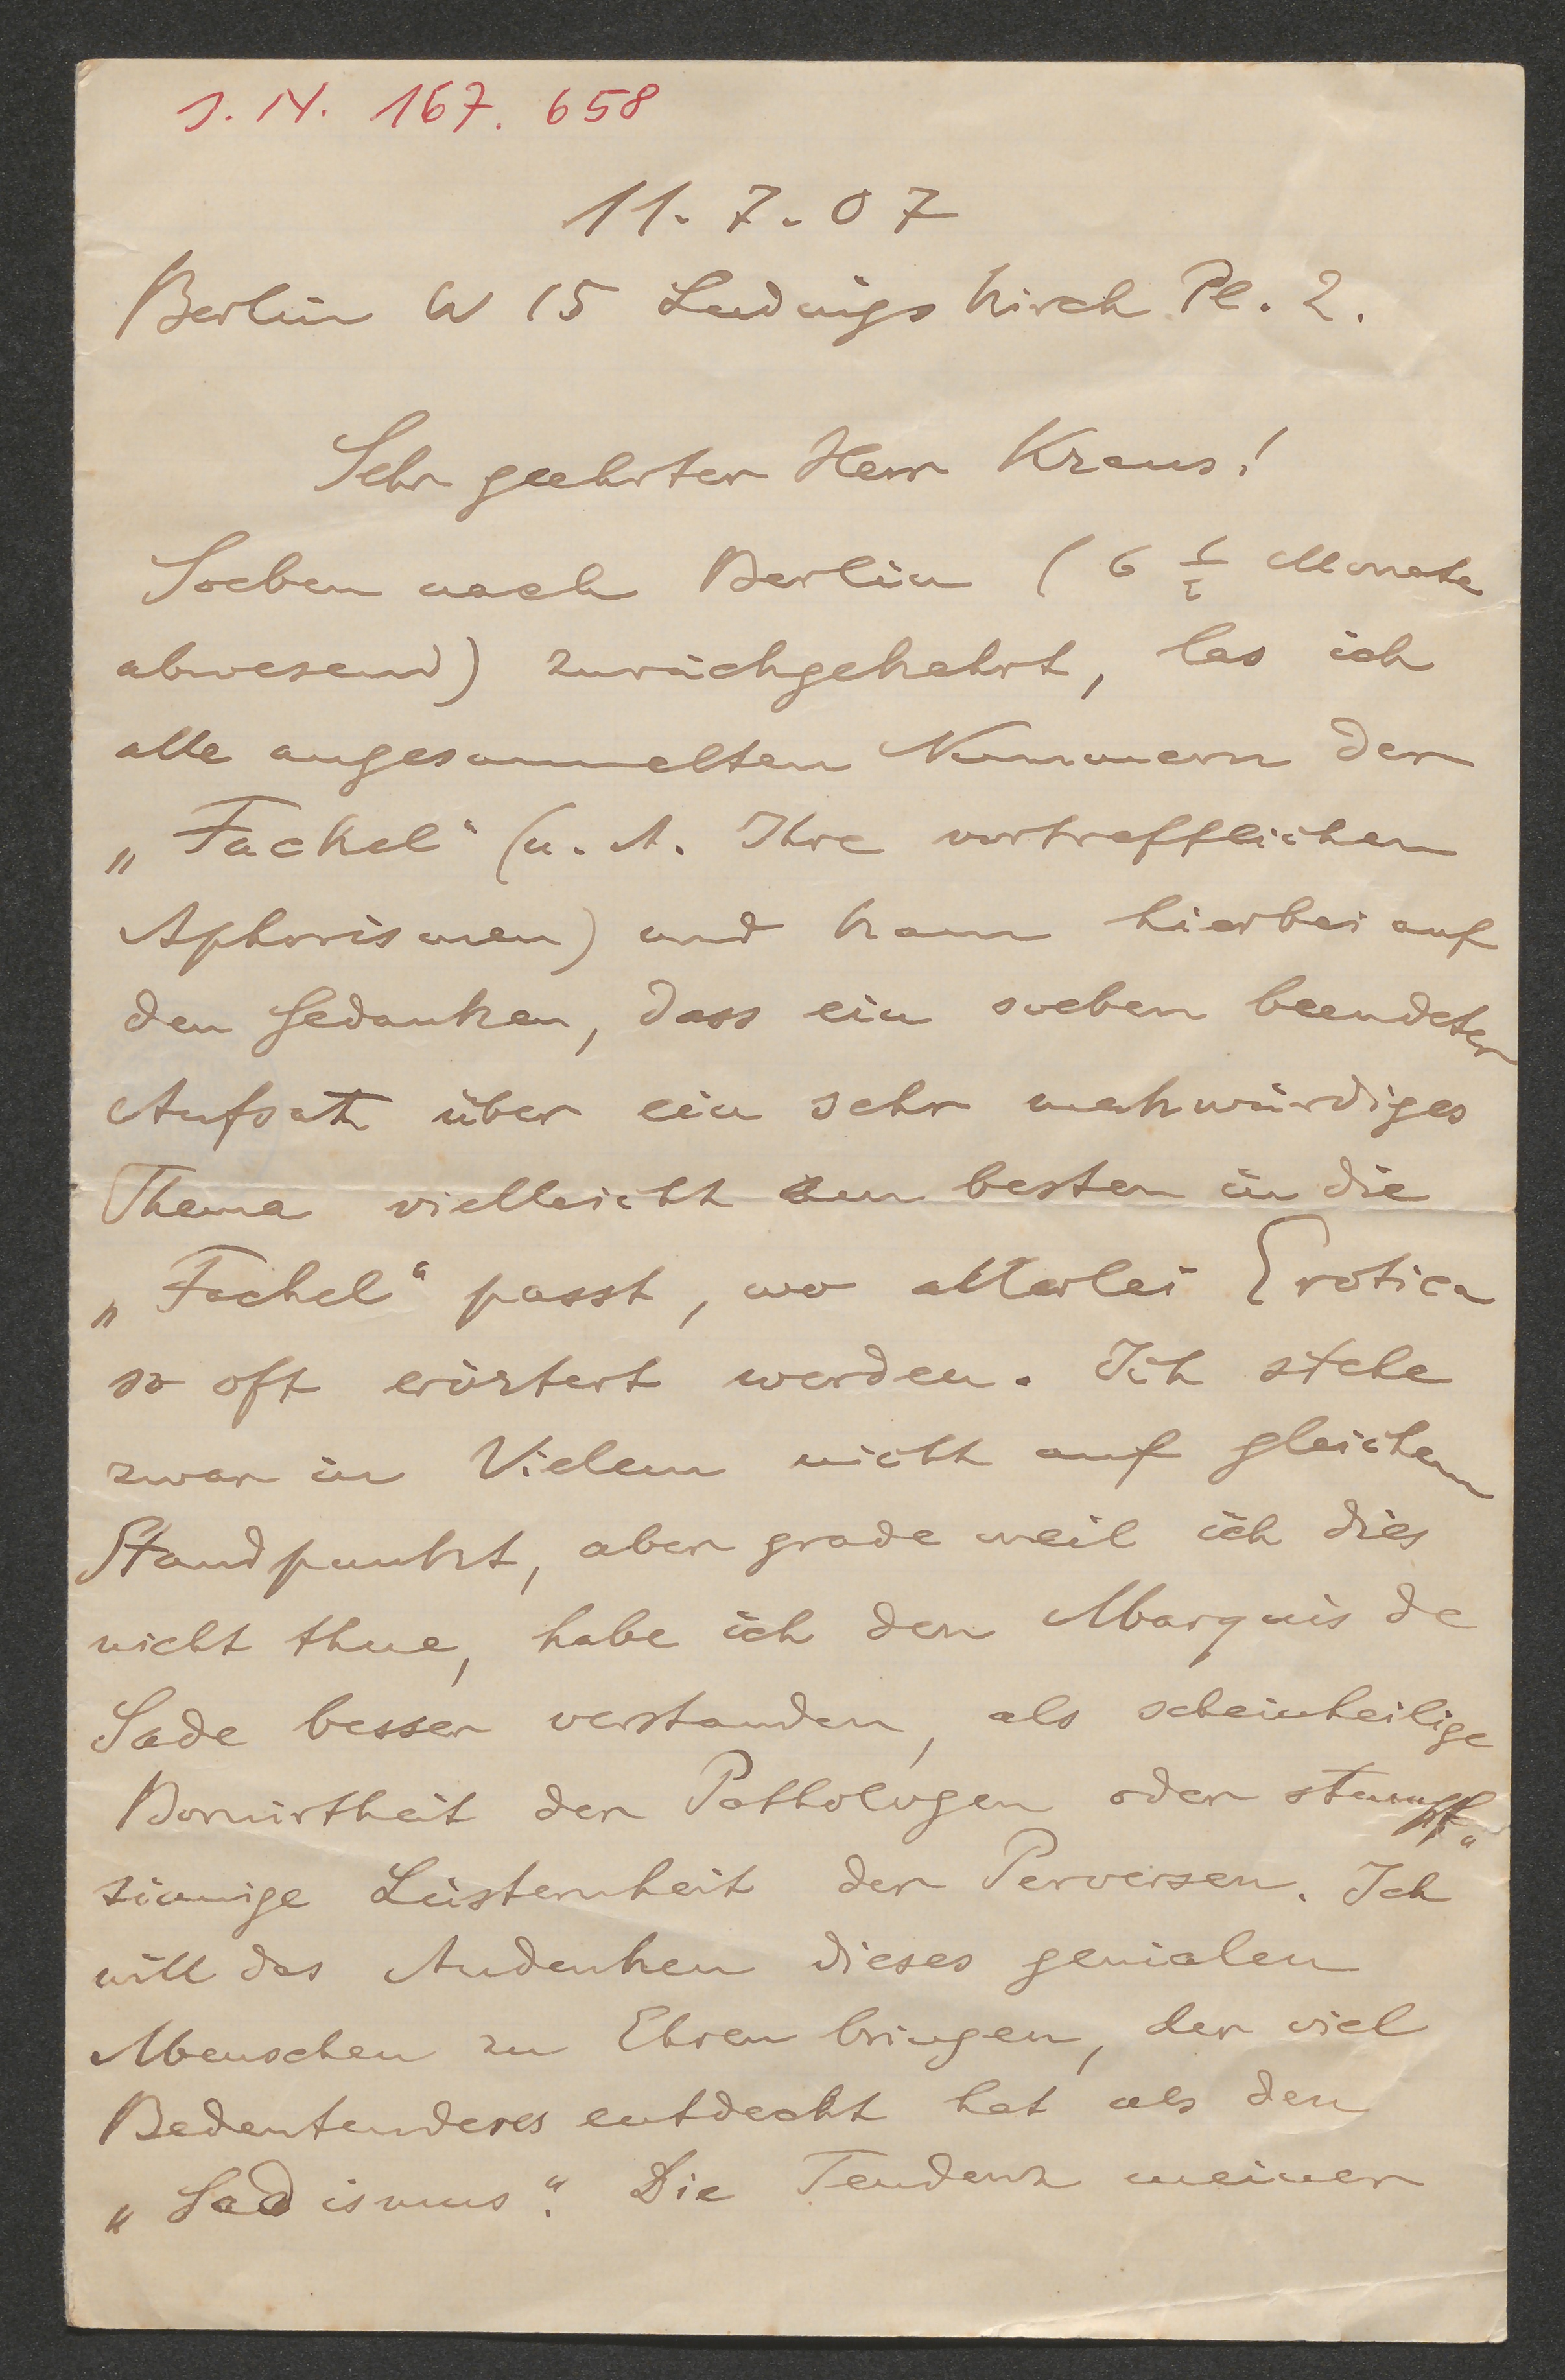 J. N. 167. 658
11. 7. 07
Berlin W 15 Ludwigskirch Pl. 2.
Sehr geehrter Herr Kraus!
Soeben nach Berlin (6 ½ Monate
abwesend) zurückgekehrt, las ich
alle angesammelten Nummern der
„Fackel“ (u. A. Ihre vortrefflichen
Aphorismen) und kam hierbei auf
den Gedanken, dass ein soeben beendeter
Aufsatz über ein sehr merkwürdiges
Thema vielleicht am besten in die
„Fackel“ passt, wo allerlei Erotica
so oft erörtert werden. Ich stehe
zwar in Vielem nicht auf gleichem
Standpunkt, aber grade weil ich dies
nicht thue, habe ich den Marquis de
Sade besser verstanden, als scheinheilige
Bornirtheit der Pathologen oder stumpf„
sinnige Lüsternheit der Perversen. Ich
will das Andenken dieses genialen
Menschen zu Ehren bringen, der viel
Bedeutenderes entdeckt hat als den
„Sadismus“. Die Tendenz meiner